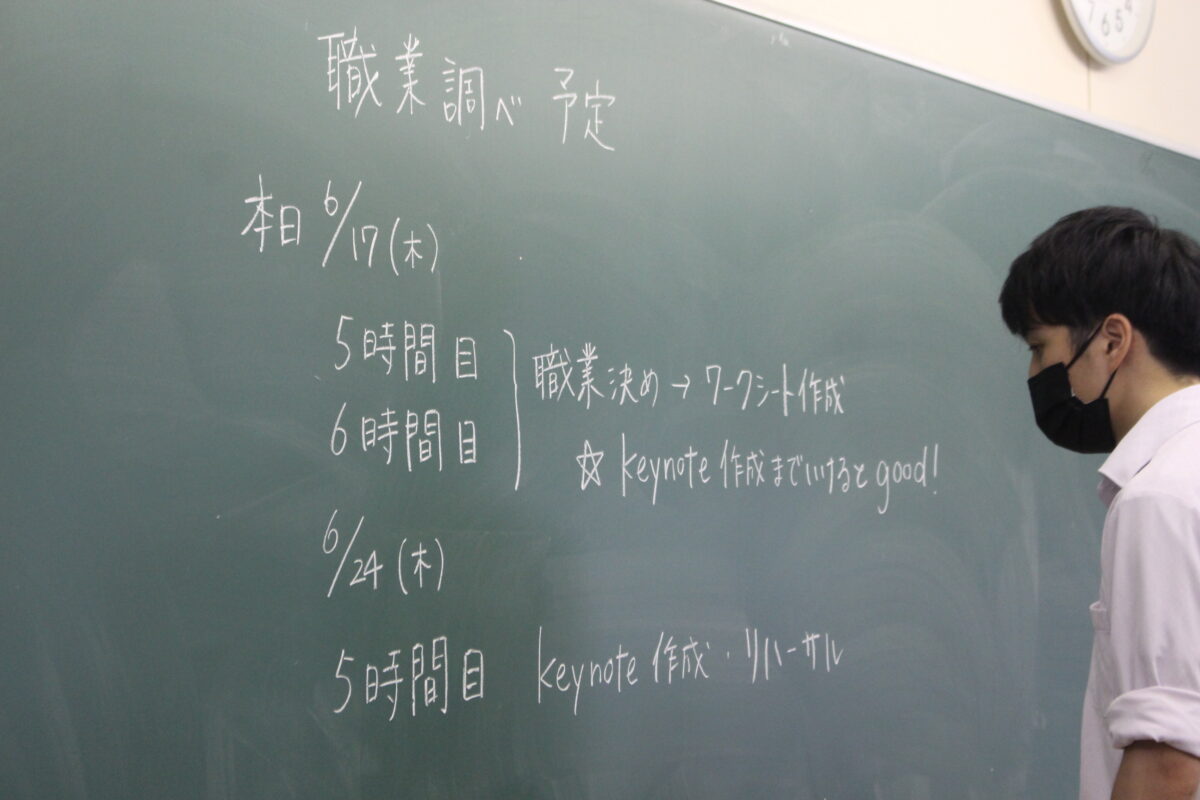 職業調べ 予定
本日 6/17(木)
5時間目
6時間目
職業決め→ワークシート作成
☆ keynote 作成までいけるとgood!
6/24(木)
5時間目 keynote 作成・リハーサル
7 6 5 4